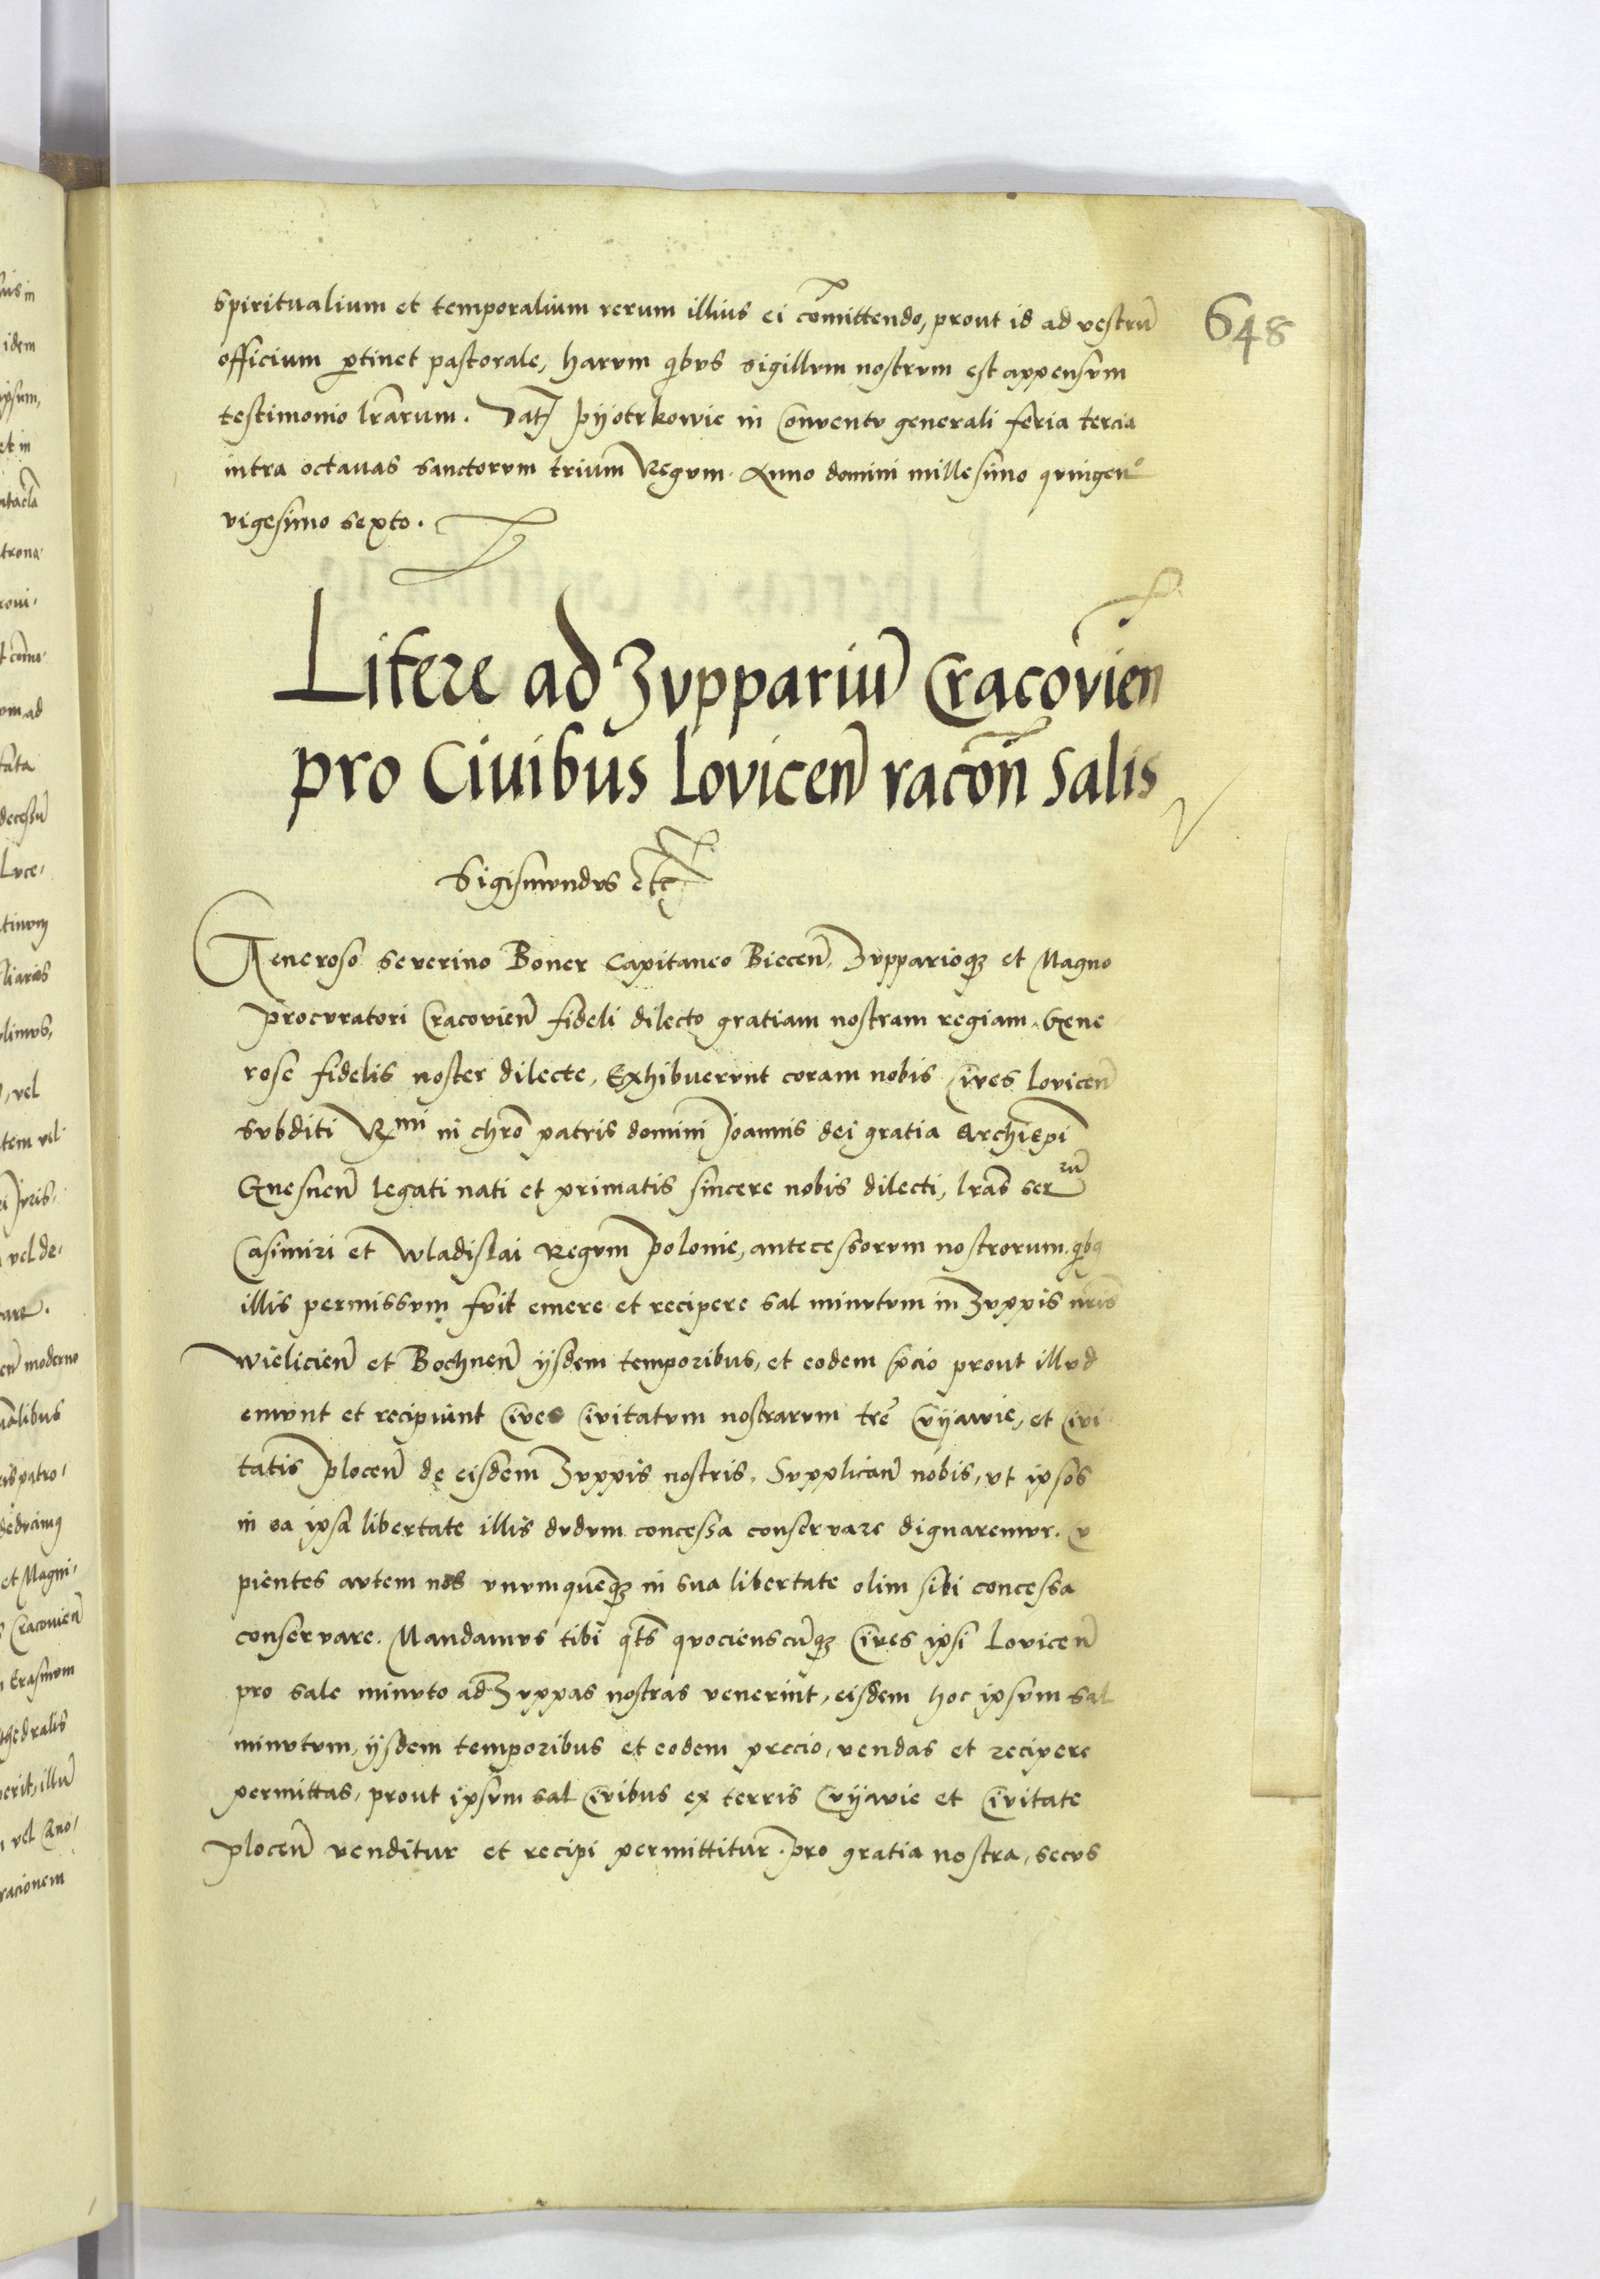 648
spiritualium et temporalium rerum illius ei com̄ittendo, prout id ad vestrū
officium ꝑtinet pastorale, harum qͥbus sigillum nostrum est appensum
testimonio lr̄arum. Datꝭ pÿotrkowie in Conventu generali feria tercia
intra octauas sanctorum trium Regum. Anno domini millesimo quingenᵒ
vigesimo sexto.
Litere ad Zuppariū Cracovien̄
pro Civibus Lovicen̄ racōn̄ Salis
Sigismundus etc̄
Generoso Severino Boner Capitaneo Biecen̄, Zupparioqꝫ et Magno
procuratori Cracovien̄ fideli dilecto gratiam nostram regiam. Gene
rose fidelis noster dilecte, Exhibuerunt coram nobis Cives Lovicen̄
subditi Rᵐⁱ in chr̄o patris domini Joannis dei gratia Archiep̄i
Gnesnen̄ legati nati et primatis sincere nobis dilecti, lr̄as serʳᵘ̄
Casimiri et Wladislai Regum polonie, antecessorum nostrorum qͥbꝯ
illis permissum fuit emere et recipere sal minutum in Zuppis nr̄is
Wielicien̄ et Bochnen̄ ÿsdem temporibus, et eodem p̄cio prout illud
emunt et recipiunt Cives Civitatum nostrarum tr̄e Cuÿavie, et Civi
tatis plocen̄ de eisdem Zuppis nostris. Supplican̄ nobis, ut ipsos
in ea ipsa libertate illis dudum concessa conservare dignaremur. Cu
pientes autem nos unumquēqꝫ in sua libertate olim sibi concessa
conservare. Mandamus tibi qͭs̄ quocienscūqꝫ Cives ipsi Lovicen̄
pro sale minuto ad Zuppas nostras venerint, eisdem hoc ipsum sal
minutum, ÿsdem temporibus et eodem precio, vendas et recipere
permittas, prout ipsum sal Civibus ex terris Cuÿavie et Civitate
plocen̄ venditur et recipi permittitur. pro gratia nostra, secus